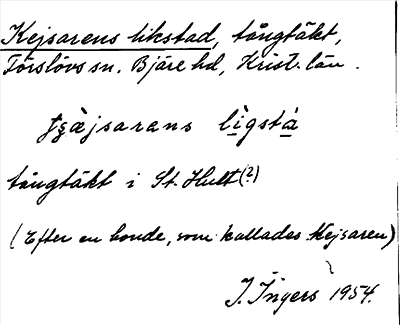 Kejsarens likstad, tångtäkt,
Förslövs sn. Bjäre hd, Krist. län.
tångtäkt i St. Hult (2)
(Efter en bonde, som kallades Kejsaren)
I. Ingers 1954.